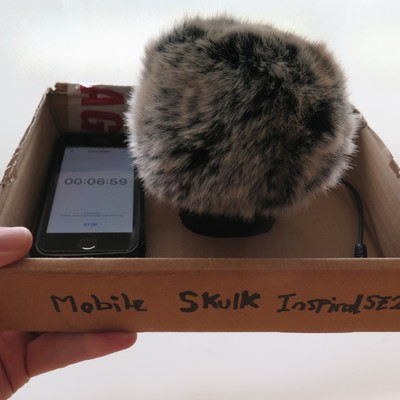 AG
00:06:59
Mobile Skulk InspiralSE2